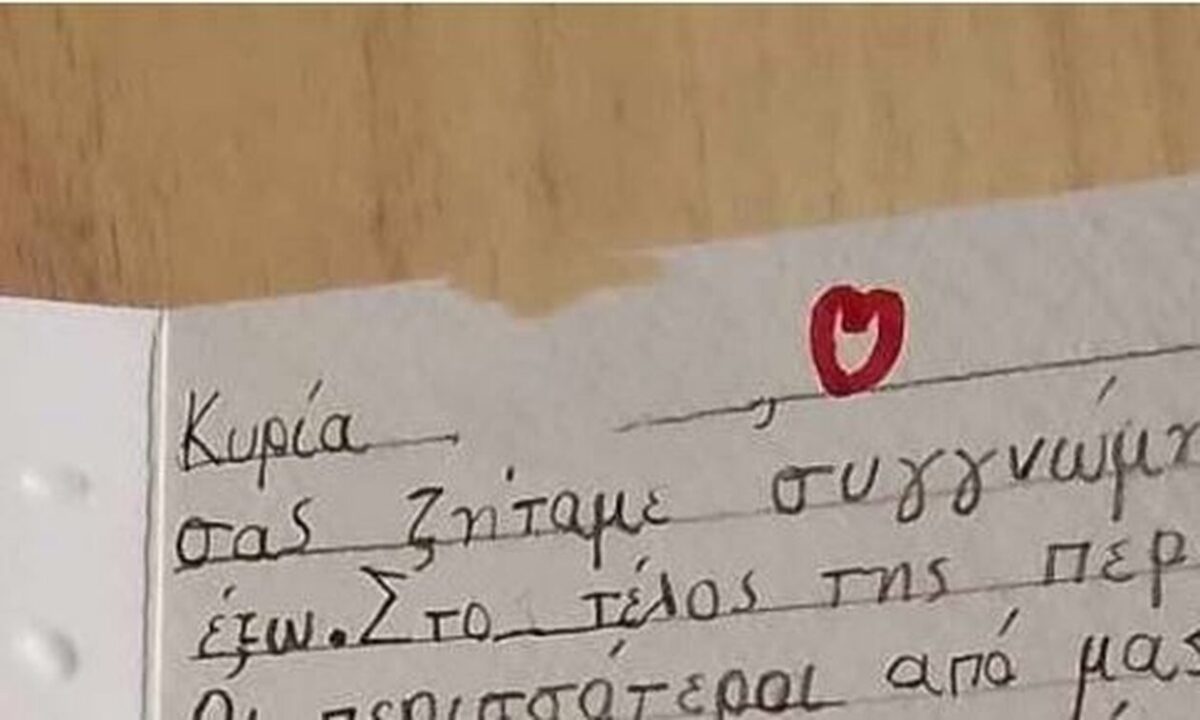 Κυρία ,
σας ζήταμε συγγνώμη
έξω. Στο τέλος της περ
Οι περισσότεροι από μας